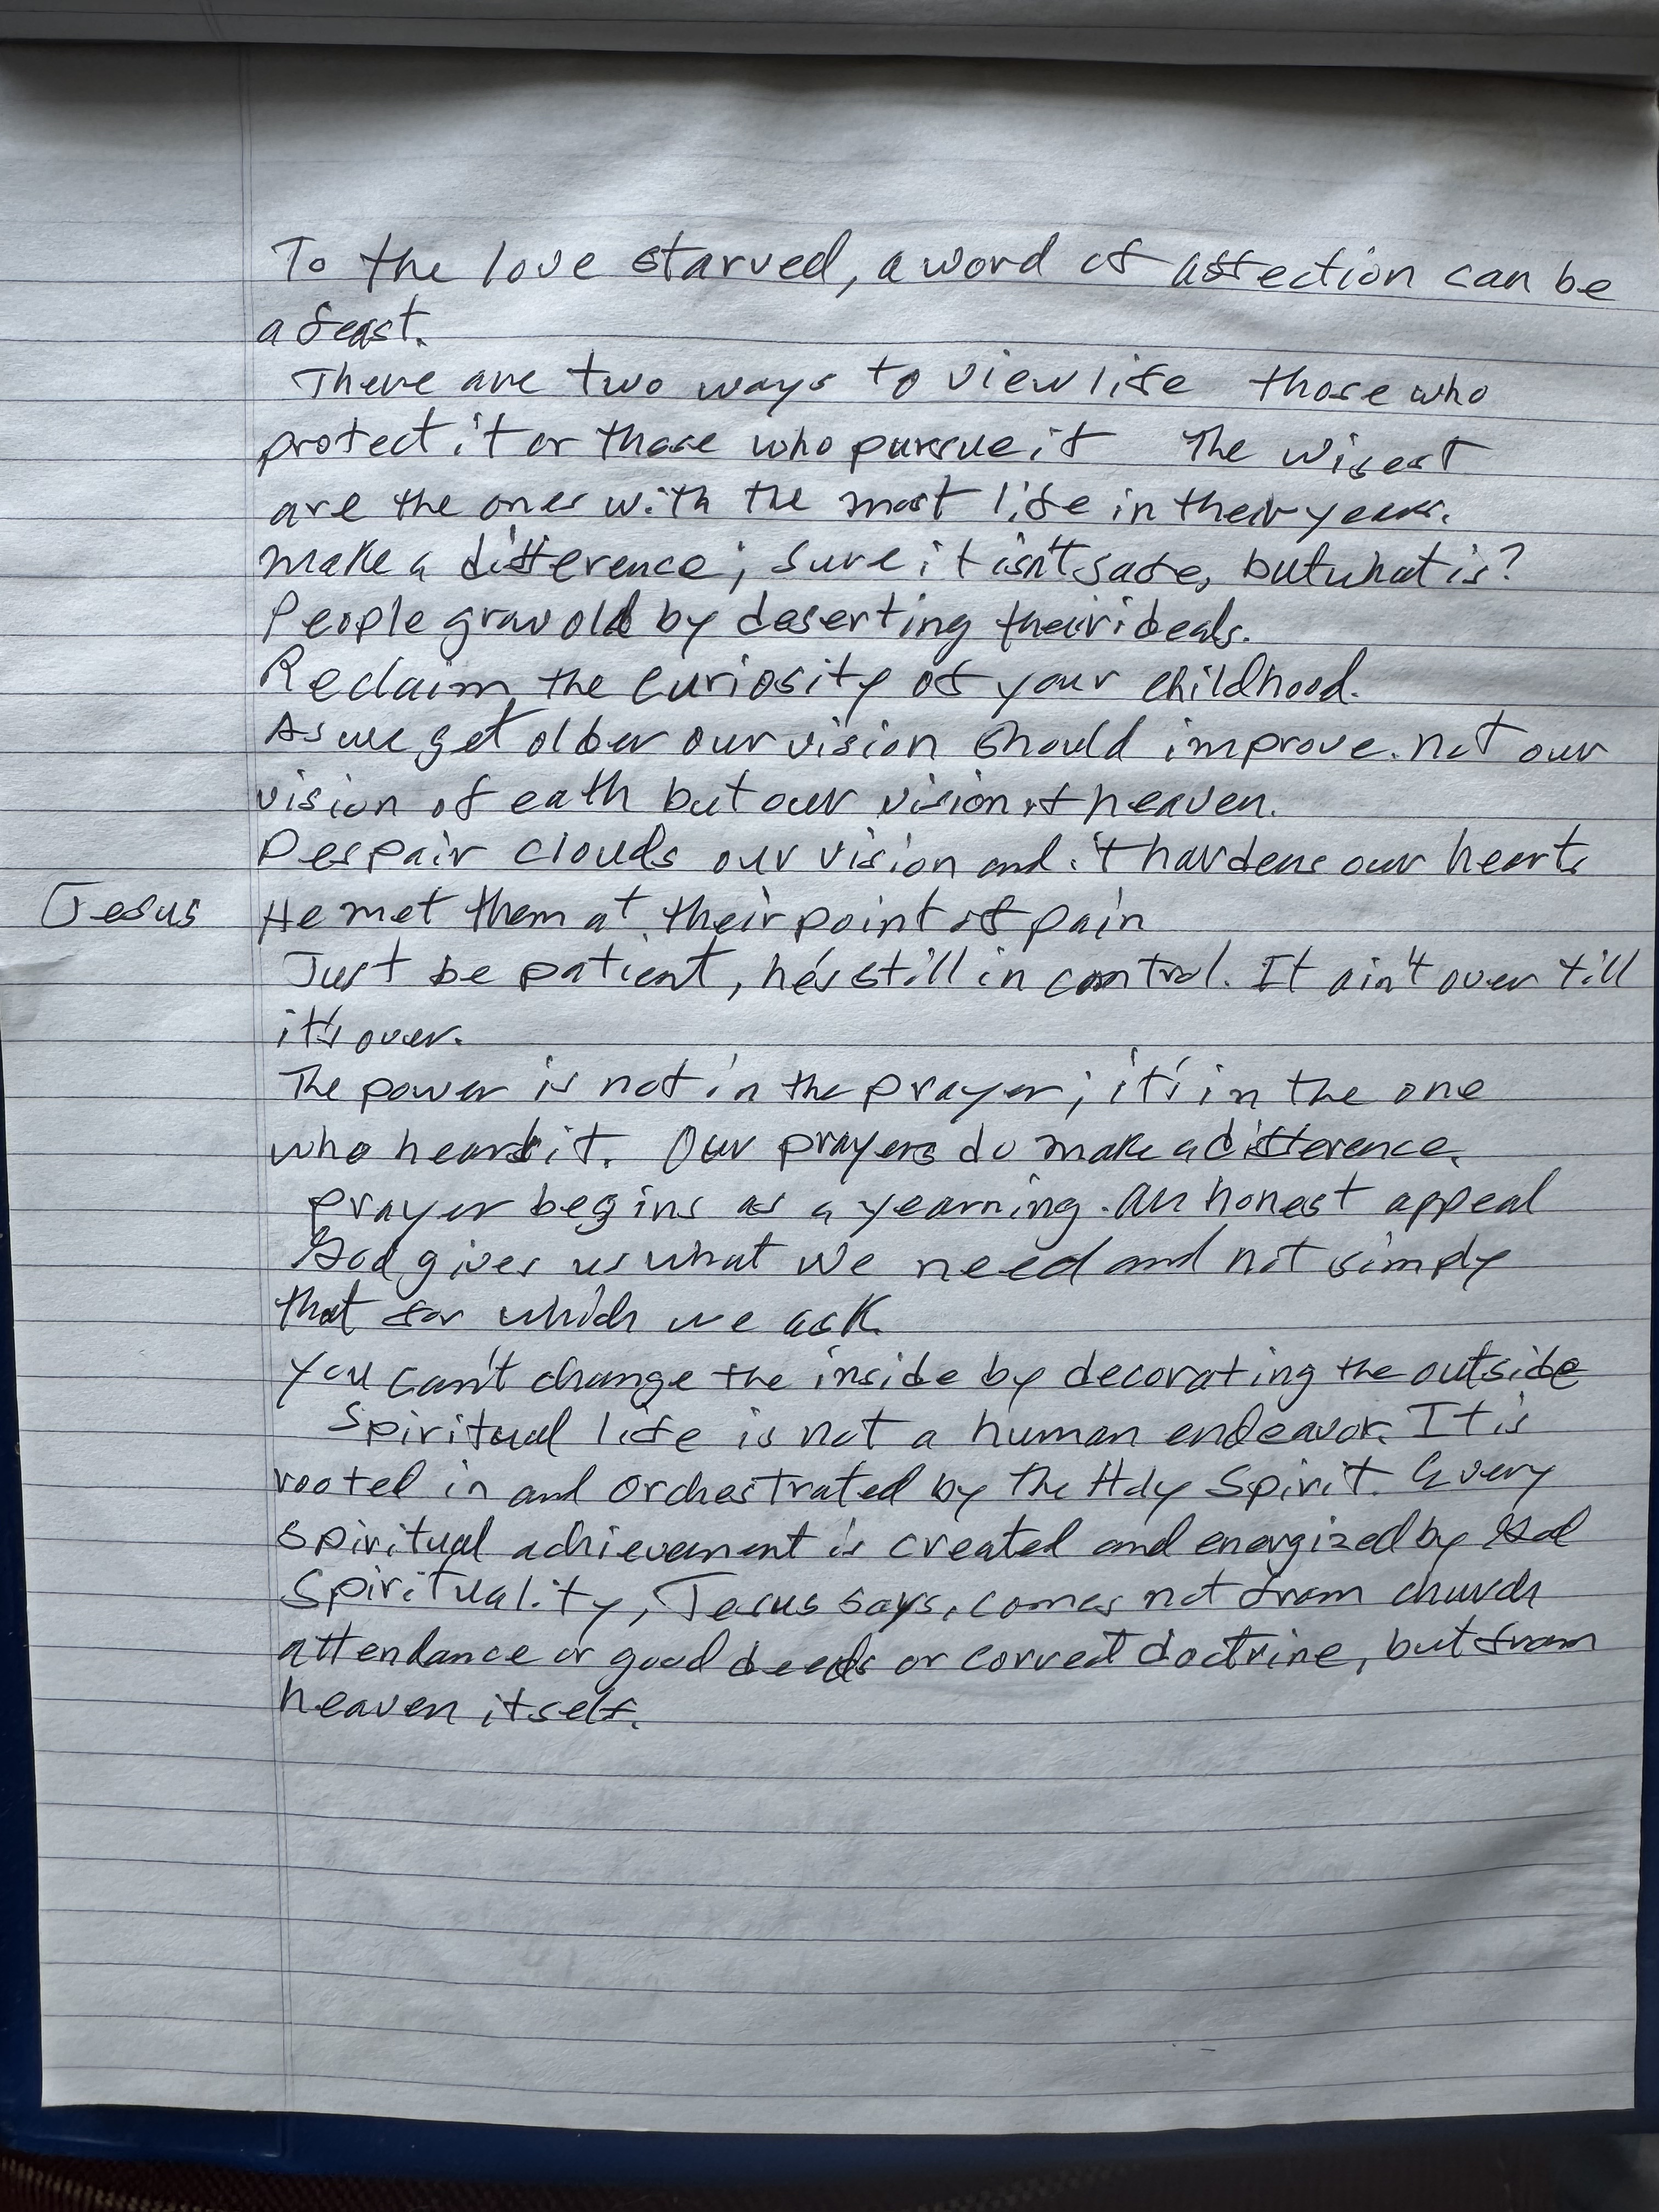 To the love starved, a word of affection can be
a feast.
There are two ways to view life those who
protect it or those who pursue it The wisest
are the ones with the most life in their years.
make a difference; sure it isn't safe, but what is?
People grow old by deserting their ideals.
Reclaim the curiosity of your childhood.
As we get older our vision should improve. not our
vision of eath but our vision of heaven.
Despair clouds our vision and it hardens our hearts
Jesus He met them at their point of pain
Just be patient, he's still in control. It ain't over till
it's over.
The power is not in the prayer; it's in the one
who hears it. Our prayers do make a difference.
prayer begins as a yearning. an honest appeal
God gives us what we need and not simply
that for which we ask.
you can't change the inside by decorating the outside
Spiritual life is not a human endeavor. It is
rooted in and orchestrated by the Holy Spirit. Every
spiritual achievement is created and energized by God
Spirituality, Jesus says, comes not from church
attendance or good deeds or correct doctrine, but from
heaven itself.